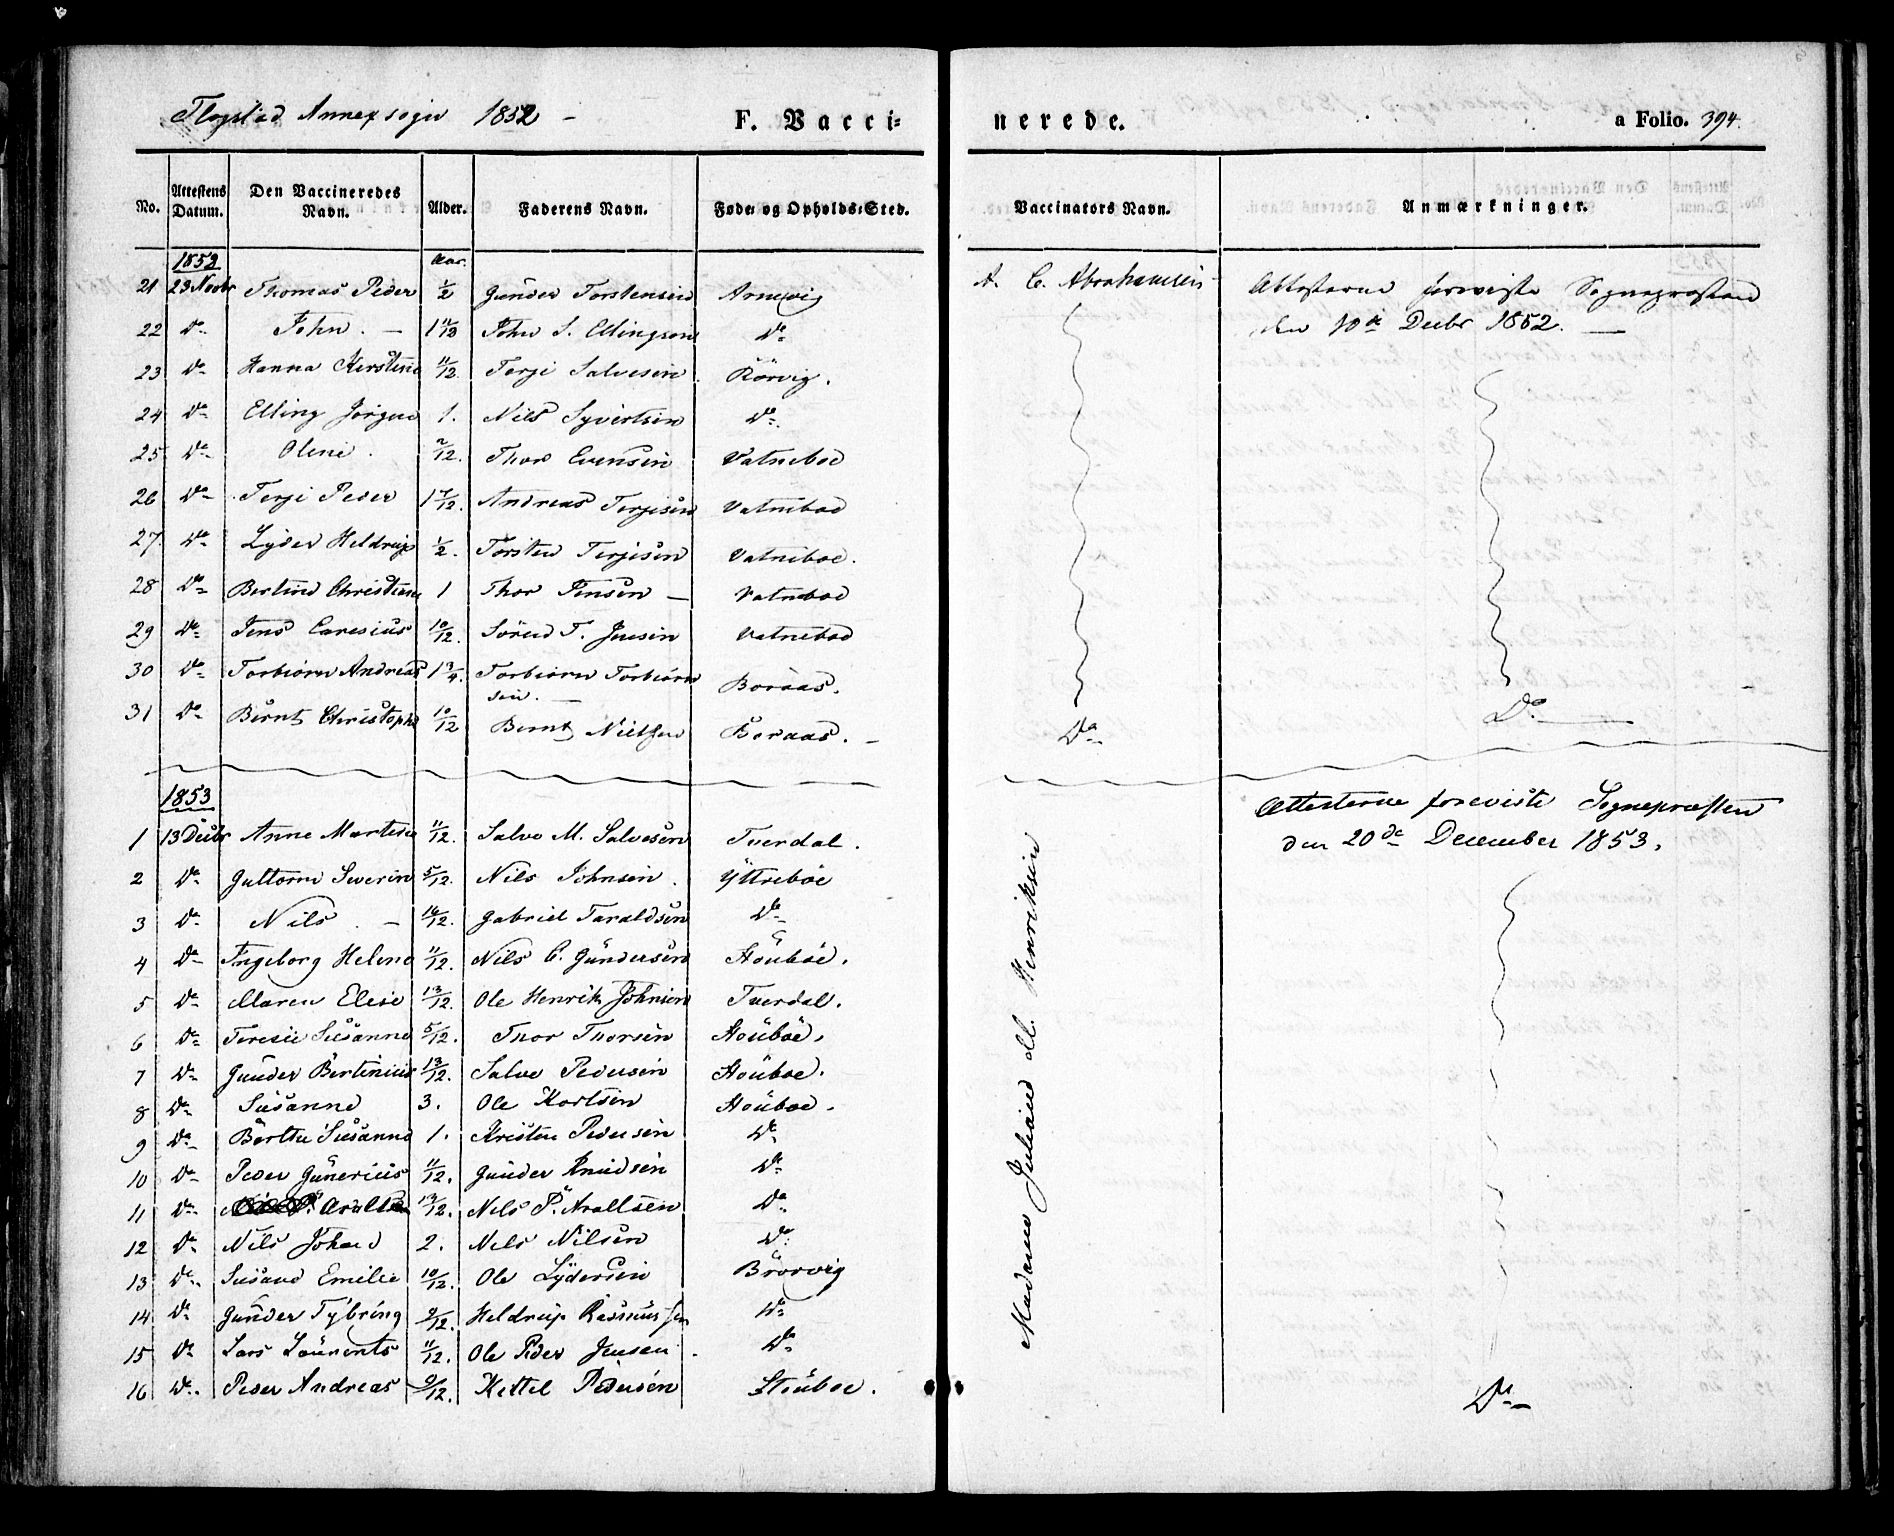 Annexsogn 1852 –
F. Vacci-
nerede.
a Folio. 394.
No. Attestens Datum. Den Vaccineredes Navn. Alder. Faderens Navn. Føde- og Opholds-Sted. Vaccinators Navn. Anmærkninger.
1852 Aar.
21 29 Novbr Thomas Peder 1/2 Gunder Torstensen Arnevig A. C. Abrahamsen Attesterne foreviste Sognepræsten
22 Do John. – 1 11/12 John S. Ellingsen Do den 10de Decbr 1852. –
23 Do Hanna Kirstine 11/12. Terje Salvesen. Rörvig.
24 Do Elling Jørgen 1. Nils Syvertsen Do
25 Do Oline. 2/12. Thor Evensen Vatneboe
26 Do Terje Peder 1 7/12. Andreas Terjesen Vatneboe
27. Do Lyder Heldrup 1/2. Torsten Terjesen Vatneboe.
28 Do Bertine Christiane 1 Thor Jensen – Vatneboe
29 Do Jens Caresius 10/12. Sören T. Jensen Vatneboe
30 Do Torbiörn Andreas 1 3/4. Torbiörn Torbiörn
sen. – Boraas.
31 Do Bernt Christopher 10/12 Bernt Nielsen Boraas. – Do Do
1853
Attesterne foreviste Sognepræsten
1 13 Decbr Anne Martine 11/12. Salve M. Salvesen Tverdal. den 20de December 1853.
2 Do Guttorm Severin 5/12. Nils Johnsen. Yttreböe
3 Do Nils. – 10/12. Gabriel Taraldsen Do
4 Do Ingeborg Helene 11/12. Nils C. Gundersen Stöuböe.
5 Do Maren Elise 13/12. Ole Henrik Johnsen Tverdal.
6 Do Teresie Susanne 5/12. Thor Thorsen Stöuböe.
7 Do Gunder Bertinius 13/12. Salve Pedersen Stöuboe.
8 Do Susanne 3. Ole Kortsen Stöuboe.
9 Do Berthe Susanne 1. Kristen Pedersen Do
10 Do Peder Gunerius 11/12. Gunder Knudsen Do
11 Do 13/12. Nils P. Araltsen Do
12 Do Nils Johan 2. Nils Nilsen Do
13 Do Susane Emilie 10/12. Ole Lydersen Brörvig
14 Do Gunder Tybring 9/12. Heldrup Rasmussen Do
15 Do Lars Laurents 11/12. Ole Peder Jensen. Do
16 Do Peder Andreas 9/12. Kettel Pedersen Stöuboe. Do
Madame Juliane M. Henriksen